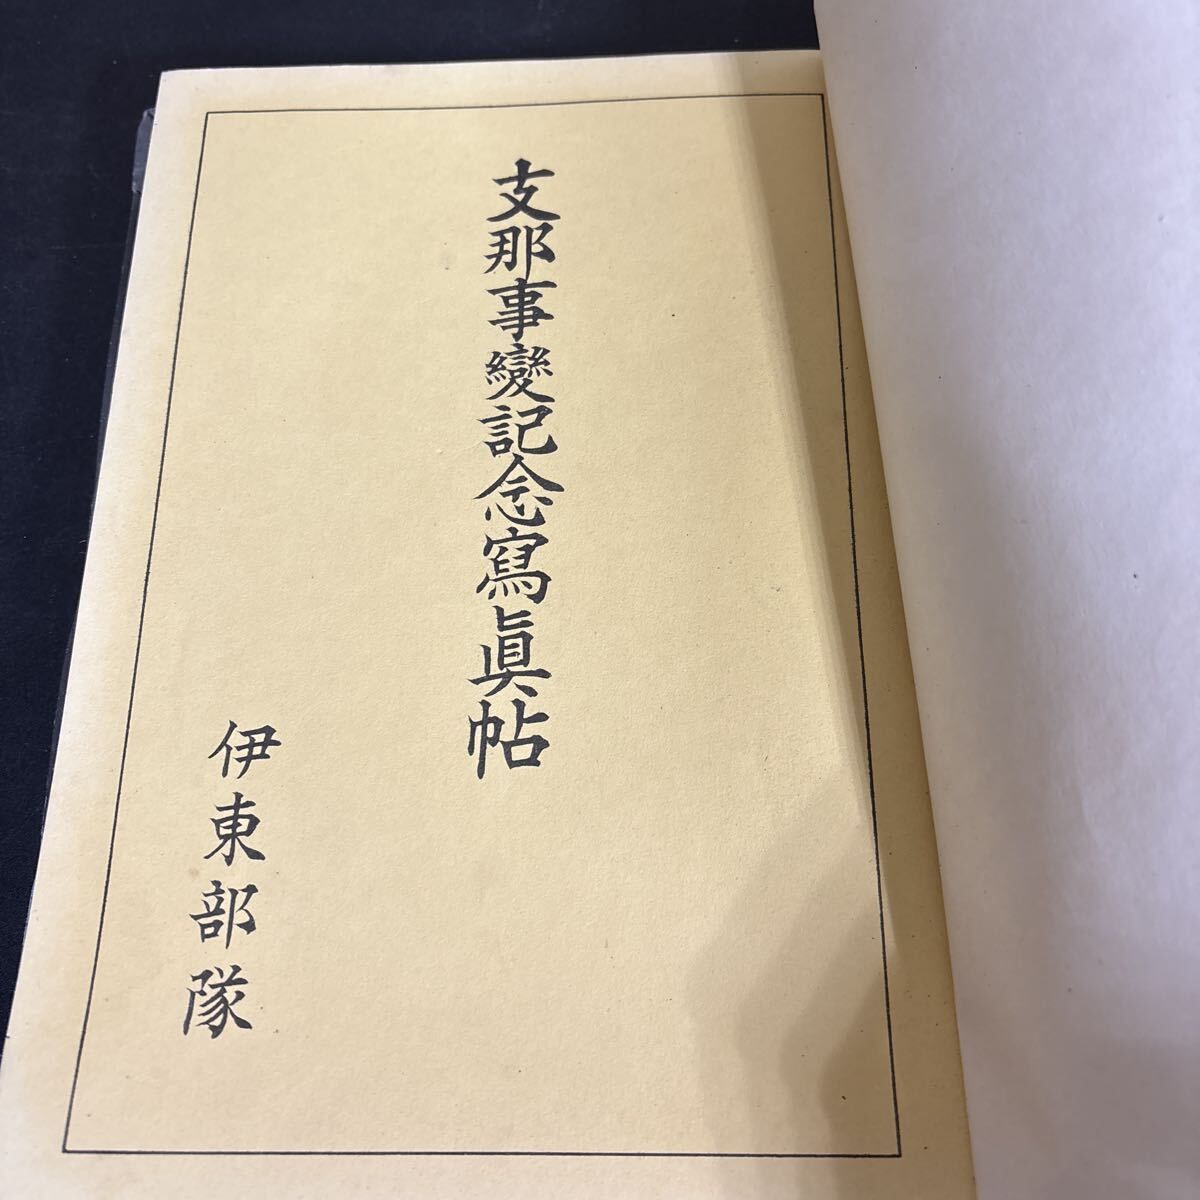 支那事變記念寫眞帖
伊東部隊